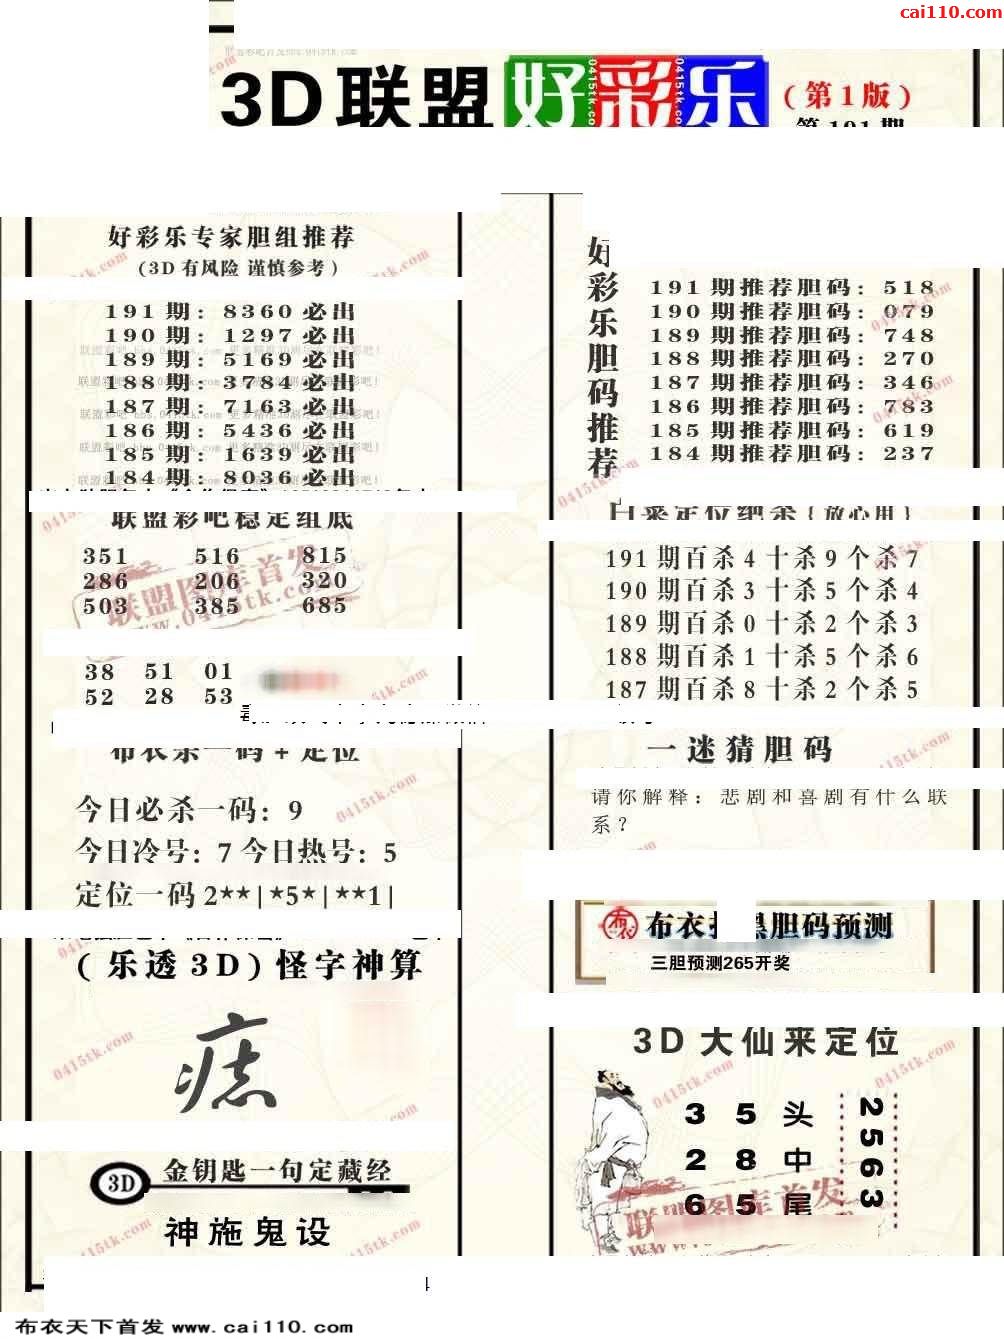 cai110.com
3D联盟好彩乐(第1版)
好彩乐专家胆组推荐
(3D有风险 谨慎参考)
191期: 8360必出
190期: 1297必出
189期: 5169必出
188期: 3784必出
187期: 7163必出
186期: 5436必出
185期: 1639必出
184期: 8036必出
联盟彩吧稳定组底
351 516 815
286 206 320
503 385 685
38 51 01
52 28 53
布衣杀一码+定位
今日必杀一码: 9
今日冷号: 7 今日热号: 5
定位一码 2**|*5*|**1|
(乐透3D)怪字神算
痣
3D 金钥匙一句定藏经
神施鬼设
好彩乐胆码推荐
191期推荐胆码: 518
190期推荐胆码: 079
189期推荐胆码: 748
188期推荐胆码: 270
187期推荐胆码: 346
186期推荐胆码: 783
185期推荐胆码: 619
184期推荐胆码: 237
191期百杀4十杀9个杀7
190期百杀3十杀5个杀4
189期百杀0十杀2个杀3
188期百杀1十杀5个杀6
187期百杀8十杀2个杀5
一迷猜胆码
请你解释: 悲剧和喜剧有什么联
系?
布衣 布衣 胆码预测
三胆预测265开奖
3D大仙来定位
3 5 头
2 8 中
6 5 尾
2563
联盟图库首发
www.0415tk.com
0415tk.com
布衣天下首发 www.cai110.com